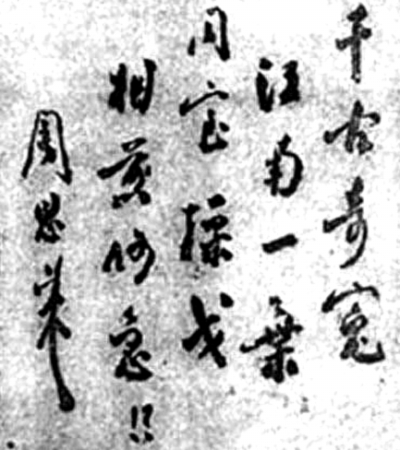 千古奇寃
江南一葉
同室操戈
相煎何急!!
周恩来